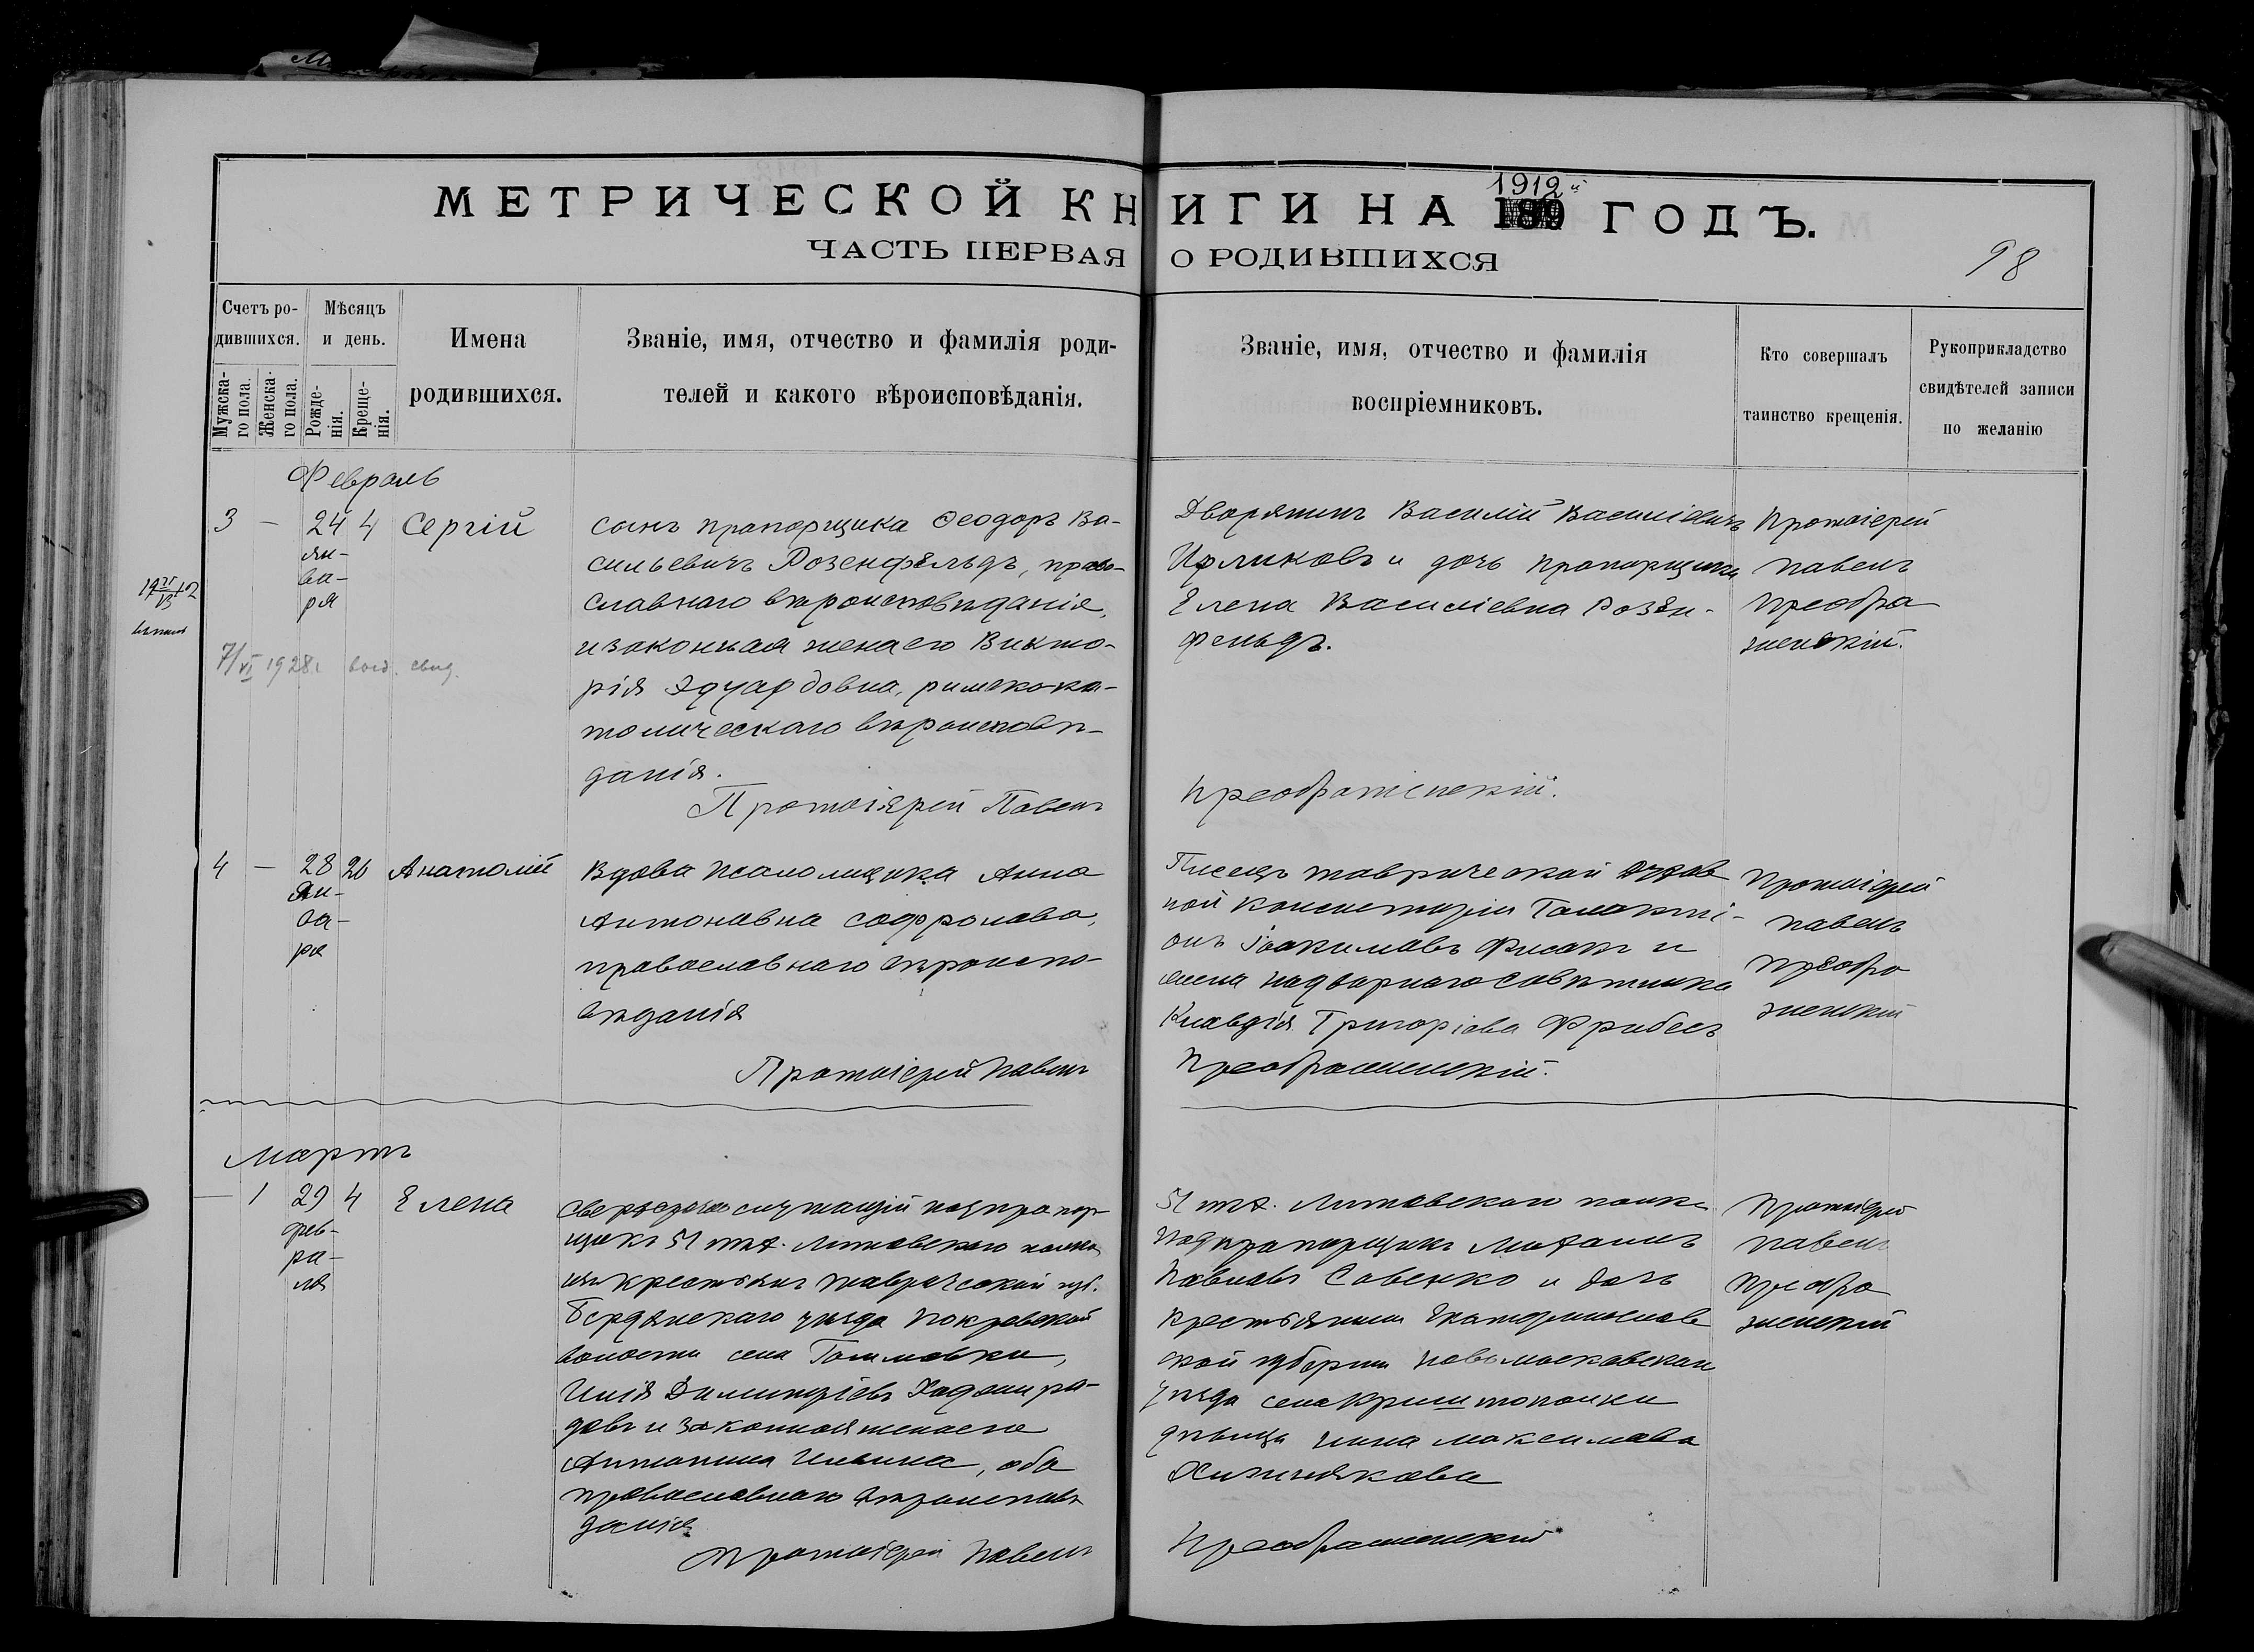 МЕТРИЧЕСКОЙ КНИГИ НА 1912й ГОДЪ.
ЧАСТЬ ПЕРВАЯ О РОДИВШИХСЯ
98
Счетъ ро-
дившихся.
Мужска-
го пола.
Женска-
го пола.
Мѣсяцъ
и день.
Рожде-
нія.
Креще-
нія.
Имена
родившихся.
Званіе, имя, отчество и фамилія роди-
телей и какого вѣроисповѣданія.
Званіе, имя, отчество и фамилія
воспріемниковъ.
Кто совершалъ
таинство крещенія.
Рукоприкладство
свидѣтелей записи
по желанію
Февраль
3 — 24 4 Сергій
ян-
ва-
ря
7/VI 1928г. выд. свид.
сынъ прапорщика Феодоръ Ва-
сильевичъ Розенфельдъ, право-
славнаго вѣроисповѣданія,
и законная жена его Викто-
рія Эдуардовна, римско-ка-
толическаго вѣроисповѣ-
данія.
Протоіерей Павелъ
Дворянинъ Василій Василіевичъ
и дочь прапорщика
Елена Василіевна Розен-
фельдъ.
Преображенскій.
Протоіерей
Павелъ
Преобра
женскій.
4 — 28 26 Анатолій
Ян-
ва-
ря
Вдова псаломщика Анна
Антоновна Софронова,
православнаго вѣроиспо-
вѣданія
Протоіерей Павелъ
Писецъ Таврической Духов
ной Консисторіи Галакті-
онъ Іоакимовъ и
жена надворнаго совѣтника
Клавдія Григоріева Фрибесъ
Преображенскій.
Протоіерей
Павелъ
Преобра
женскій
Мартъ
— 1 29 4 Елена
фев-
ра-
ля
сверхсрочно служащій подпрапор-
щикъ 51 пѣх. Литовскаго полка
изъ крестьянъ Таврической губ.
Бердянскаго уѣзда Покровской
волости села
Илія Димитріевъ
и законная жена его
Антонина Ильина, оба
православнаго вѣроисповѣ
данія
Протоіерей Павелъ
51 пѣх. Литовскаго полка
подпрапорщикъ Михаилъ
Павловъ Савенко и дочь
крестьянина Екатеринослав
ской губерніи Новомосковскаго
уѣзда села
дѣвица Максимова
Преображенскій
Протоіерей
Павелъ
Преобра
женскій